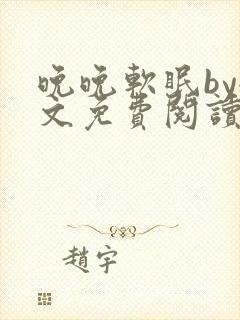 晚晚軟眠by
文免費閱讀
趙宇